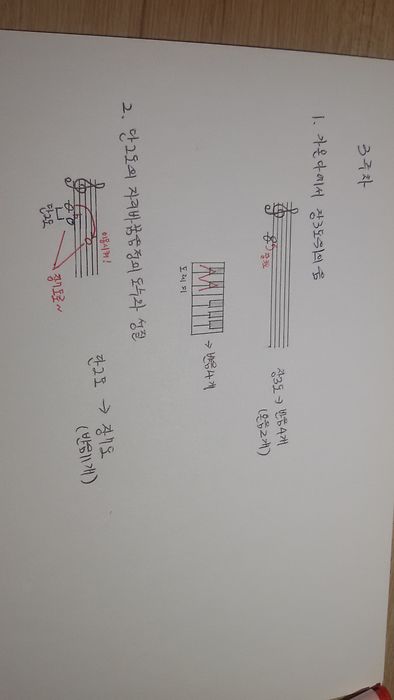 3주차
1. 가온다에서 장3도위의 음
장3도 → 반음4개
(온음2개)
도레미
→ 반음4개
2. 단2도의 자리바꿈음정의 도수와 성질
이동시켜!
단2도
장7도로~
단2도 → 장7도
(반음11개)